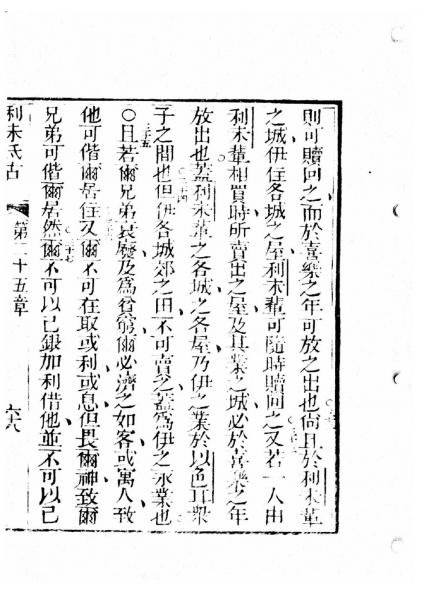 則可贖回之而於喜樂之年可放之出也尚且於利未輩
之城伊住各城之屋利未輩可隨時贖回之又若一人由
利未輩相買時所賣出之屋及其業之城必於喜樂之年
放出也蓋利未輩之各城之各屋乃伊之業於以色耳衆
子之間也但伊各城郊之田不可賣之蓋為伊之永業也
○且若爾兄弟衰廢及為貧窮爾必濟之如客或寓人致
他可偕爾居住又爾不可在取或利或息但畏爾神致爾
兄弟可偕爾居然爾不可以己銀加利借他並不可以己
利未氏古 第二十五章 六八